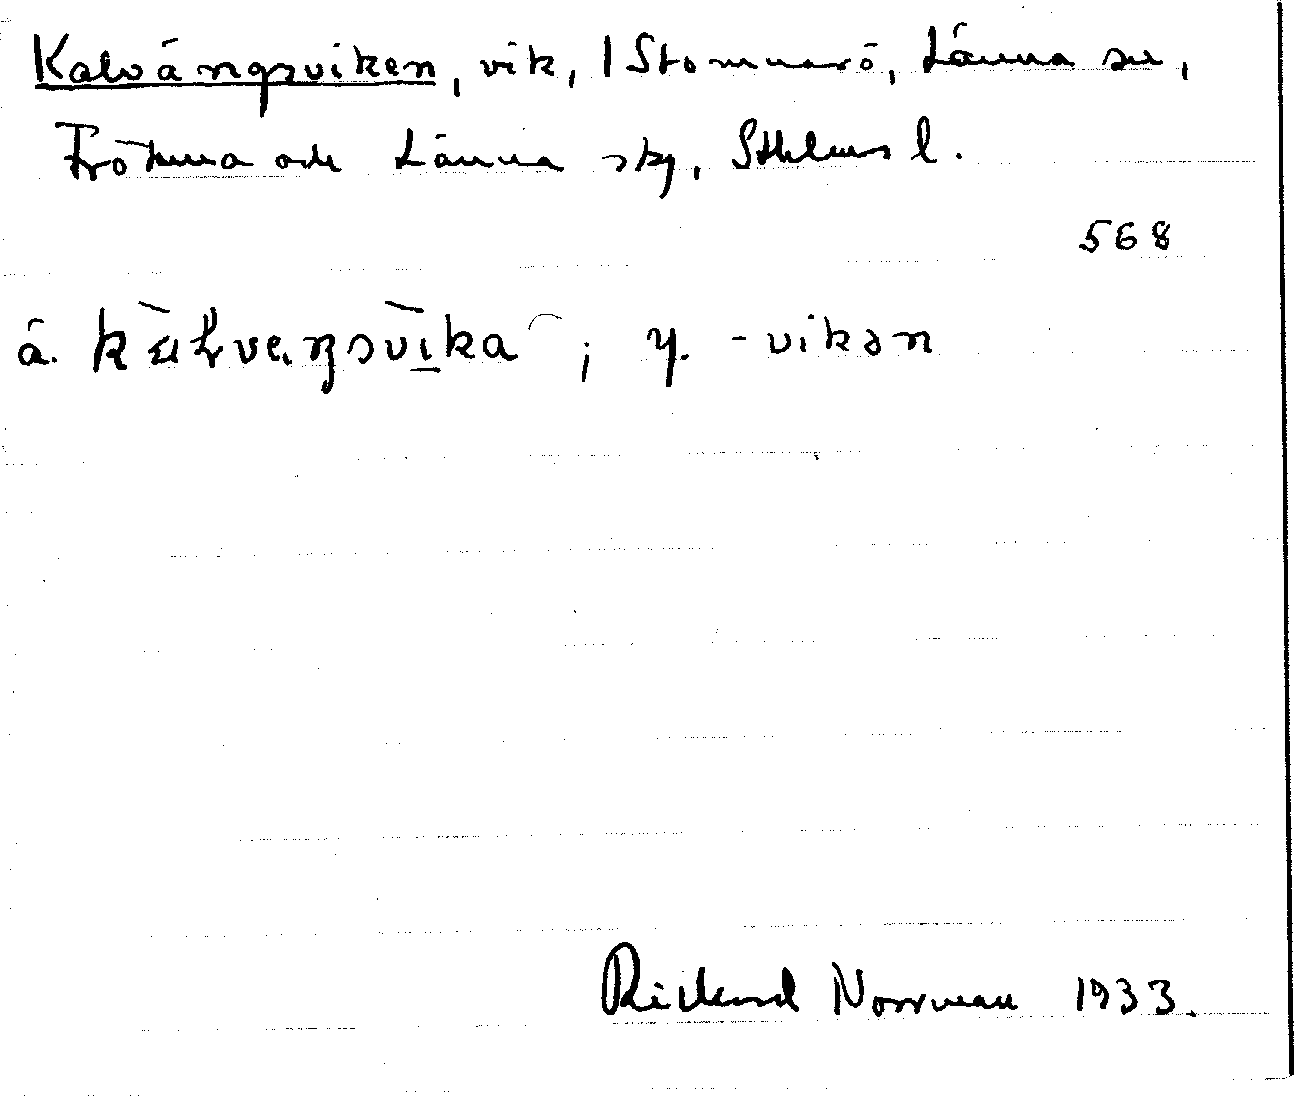 Kalvängsviken, vik, 1 Stommarö, Länna sn,
Frötuna och Länna skg, Sthlms l.
568
ä. kalveŋsvika ; y. -vikən
Rickard Norrman 1933.